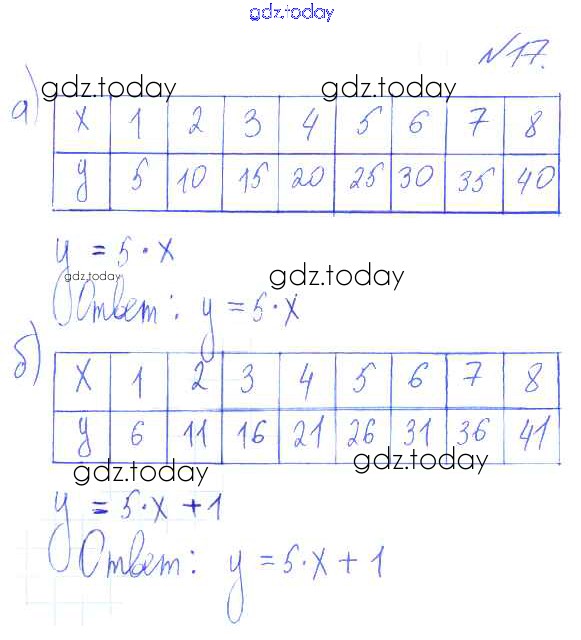 gdz.today
№17.
gdz.today gdz.today
а)
x 1 2 3 4 5 6 7 8
y 5 10 15 20 25 30 35 40
y = 5·x
gdz.today gdz.today
Ответ: y = 5·x
б)
x 1 2 3 4 5 6 7 8
y 6 11 16 21 26 31 36 41
gdz.today gdz.today
y = 5·x + 1
Ответ: y = 5·x + 1